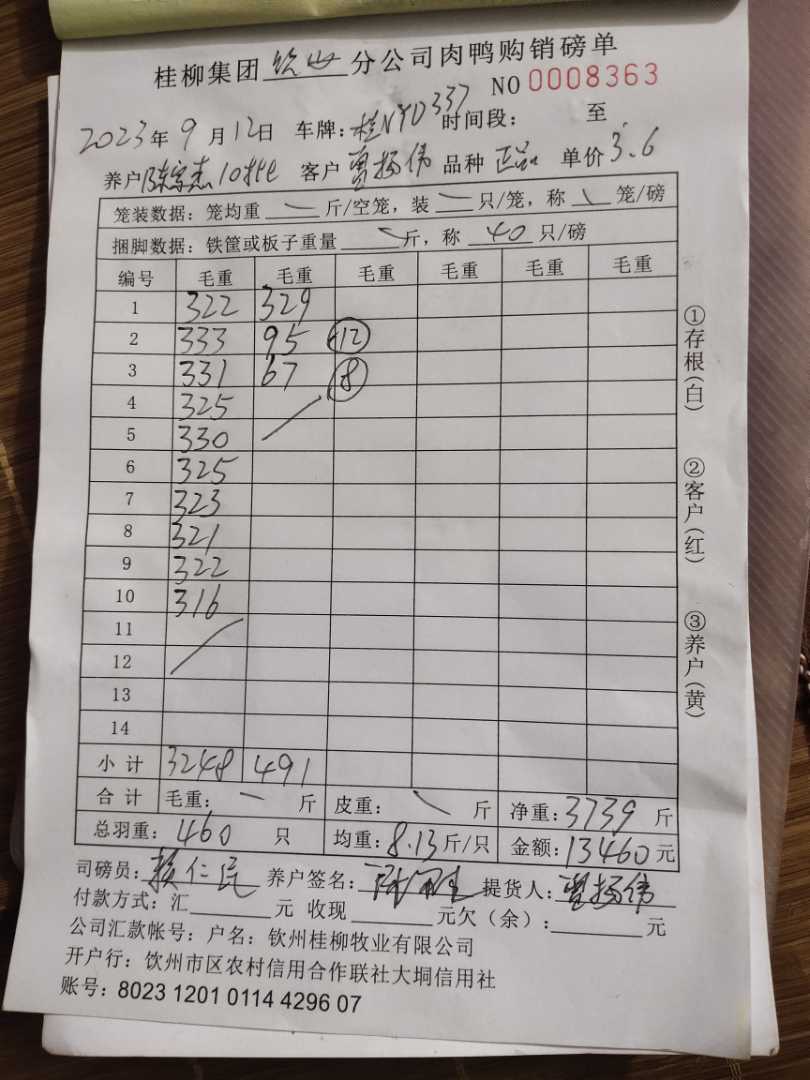 桂柳集团 钦州 分公司肉鸭购销磅单
NO 0008363
2023年9月12日 车牌：桂NYD337 时间段： 至
养户 陈家杰10批 客户 贾扬伟 品种 正品 单价3.6
笼装数据：笼均重 斤/空笼，装 只/笼，称 笼/磅
捆脚数据：铁筐或板子重量 斤，称 40 只/磅
编号 毛重 毛重 毛重 毛重 毛重 毛重
1 322 329
2 333 95 12
3 331 67 8
4 325
5 330
6 325
7 323
8 321
9 322
10 316
11
12
13
14
小计 3248 491
合计 毛重： 斤 皮重： 斤 净重：3739 斤
总羽重：460 只 均重：8.13斤/只 金额：13460元
司磅员：赖仁民 养户签名： 提货人：贾扬伟
付款方式：汇 元 收现 元欠（余）： 元
公司汇款帐号：户名：钦州桂柳牧业有限公司
开户行：钦州市区农村信用合作联社大垌信用社
账号：8023 1201 0114 4296 07
①存根（白） ②客户（红） ③养户（黄）